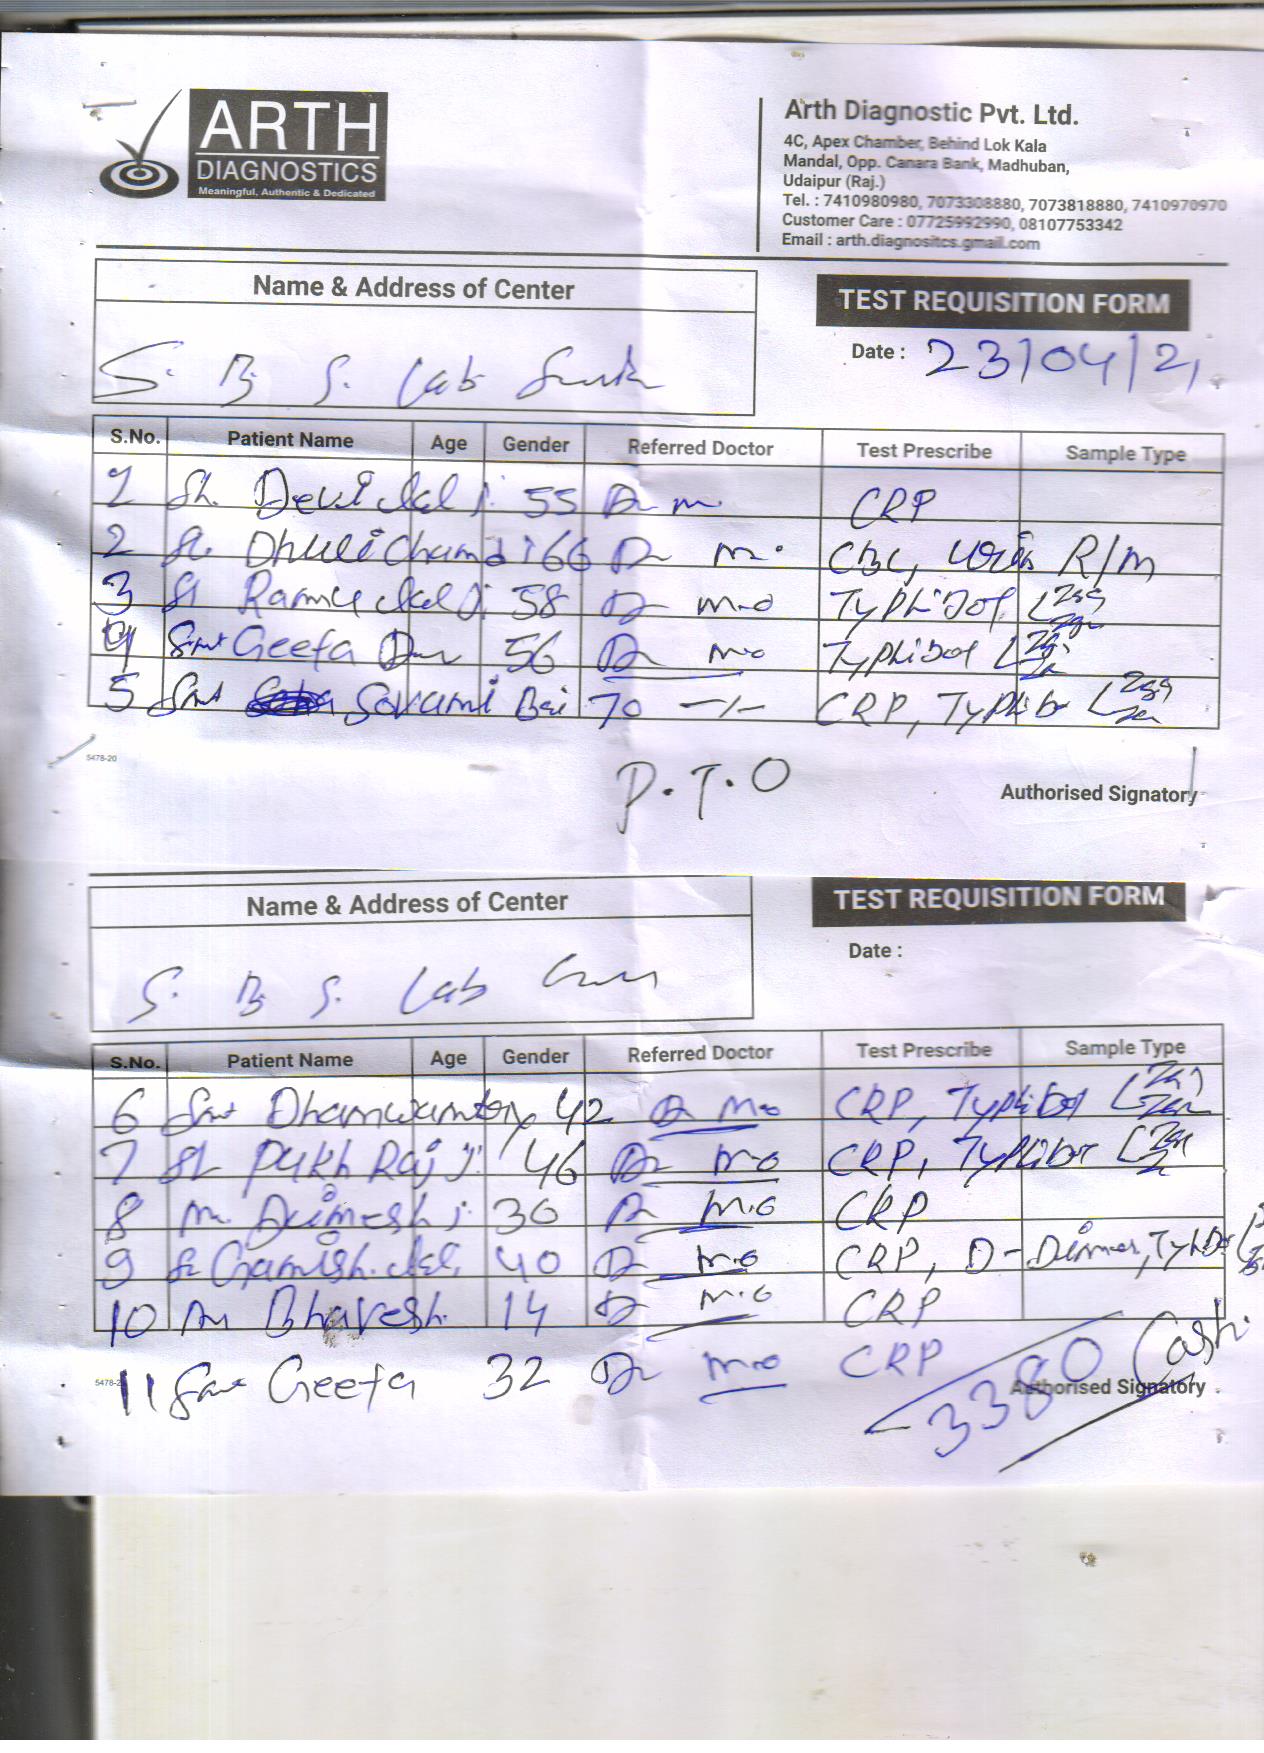 ARTH
DIAGNOSTICS
Meaningful, Authentic & Dedicated
Arth Diagnostic Pvt. Ltd.
4C, Apex Chamber, Behind Lok Kala
Mandal, Opp. Canara Bank, Madhuban,
Udaipur (Raj.)
Tel. : 7410980980, 7073308880, 7073818880, 7410970970
Customer Care : 07725992990, 08107753342
Email : arth.diagnositcs.gmail.com
Name & Address of Center
TEST REQUISITION FORM
Date : 23/04/21
S. B. S. Lab
S.No. Patient Name Age Gender Referred Doctor Test Prescribe Sample Type
1 Sh. Devi Lal Ji 55 Dr m. CRP
2 Sh. Dhuli Chand 66 Dr m. CBC, Urin R/m
3 Sh Ramu Lal Ji 58 Dr m.o Typhidot
4 Smt Geeta 56 Dr m.o Typhidot
5 Smt Sovami Bai 70 -/- CRP, Typhidot
5478-20
P.T.O
Authorised Signatory
Name & Address of Center
TEST REQUISITION FORM
Date :
S. B. S. Lab
S.No. Patient Name Age Gender Referred Doctor Test Prescribe Sample Type
6 Smt Dhanwanter 42 Dr m.o CRP, Typhidot
7 Sh Pukh Raj Ji 46 Dr m.o CRP, Typhidot
8 Mr. Dimesh Ji 30 Dr m.o CRP
9 Sh Gamish Lal 40 Dr m.o CRP, D-Dimer,
10 Mr Bhavesh 14 Dr m.o CRP
11 Smt Geeta 32 Dr m.o CRP
3380 Cash
5478-2
Authorised Signatory